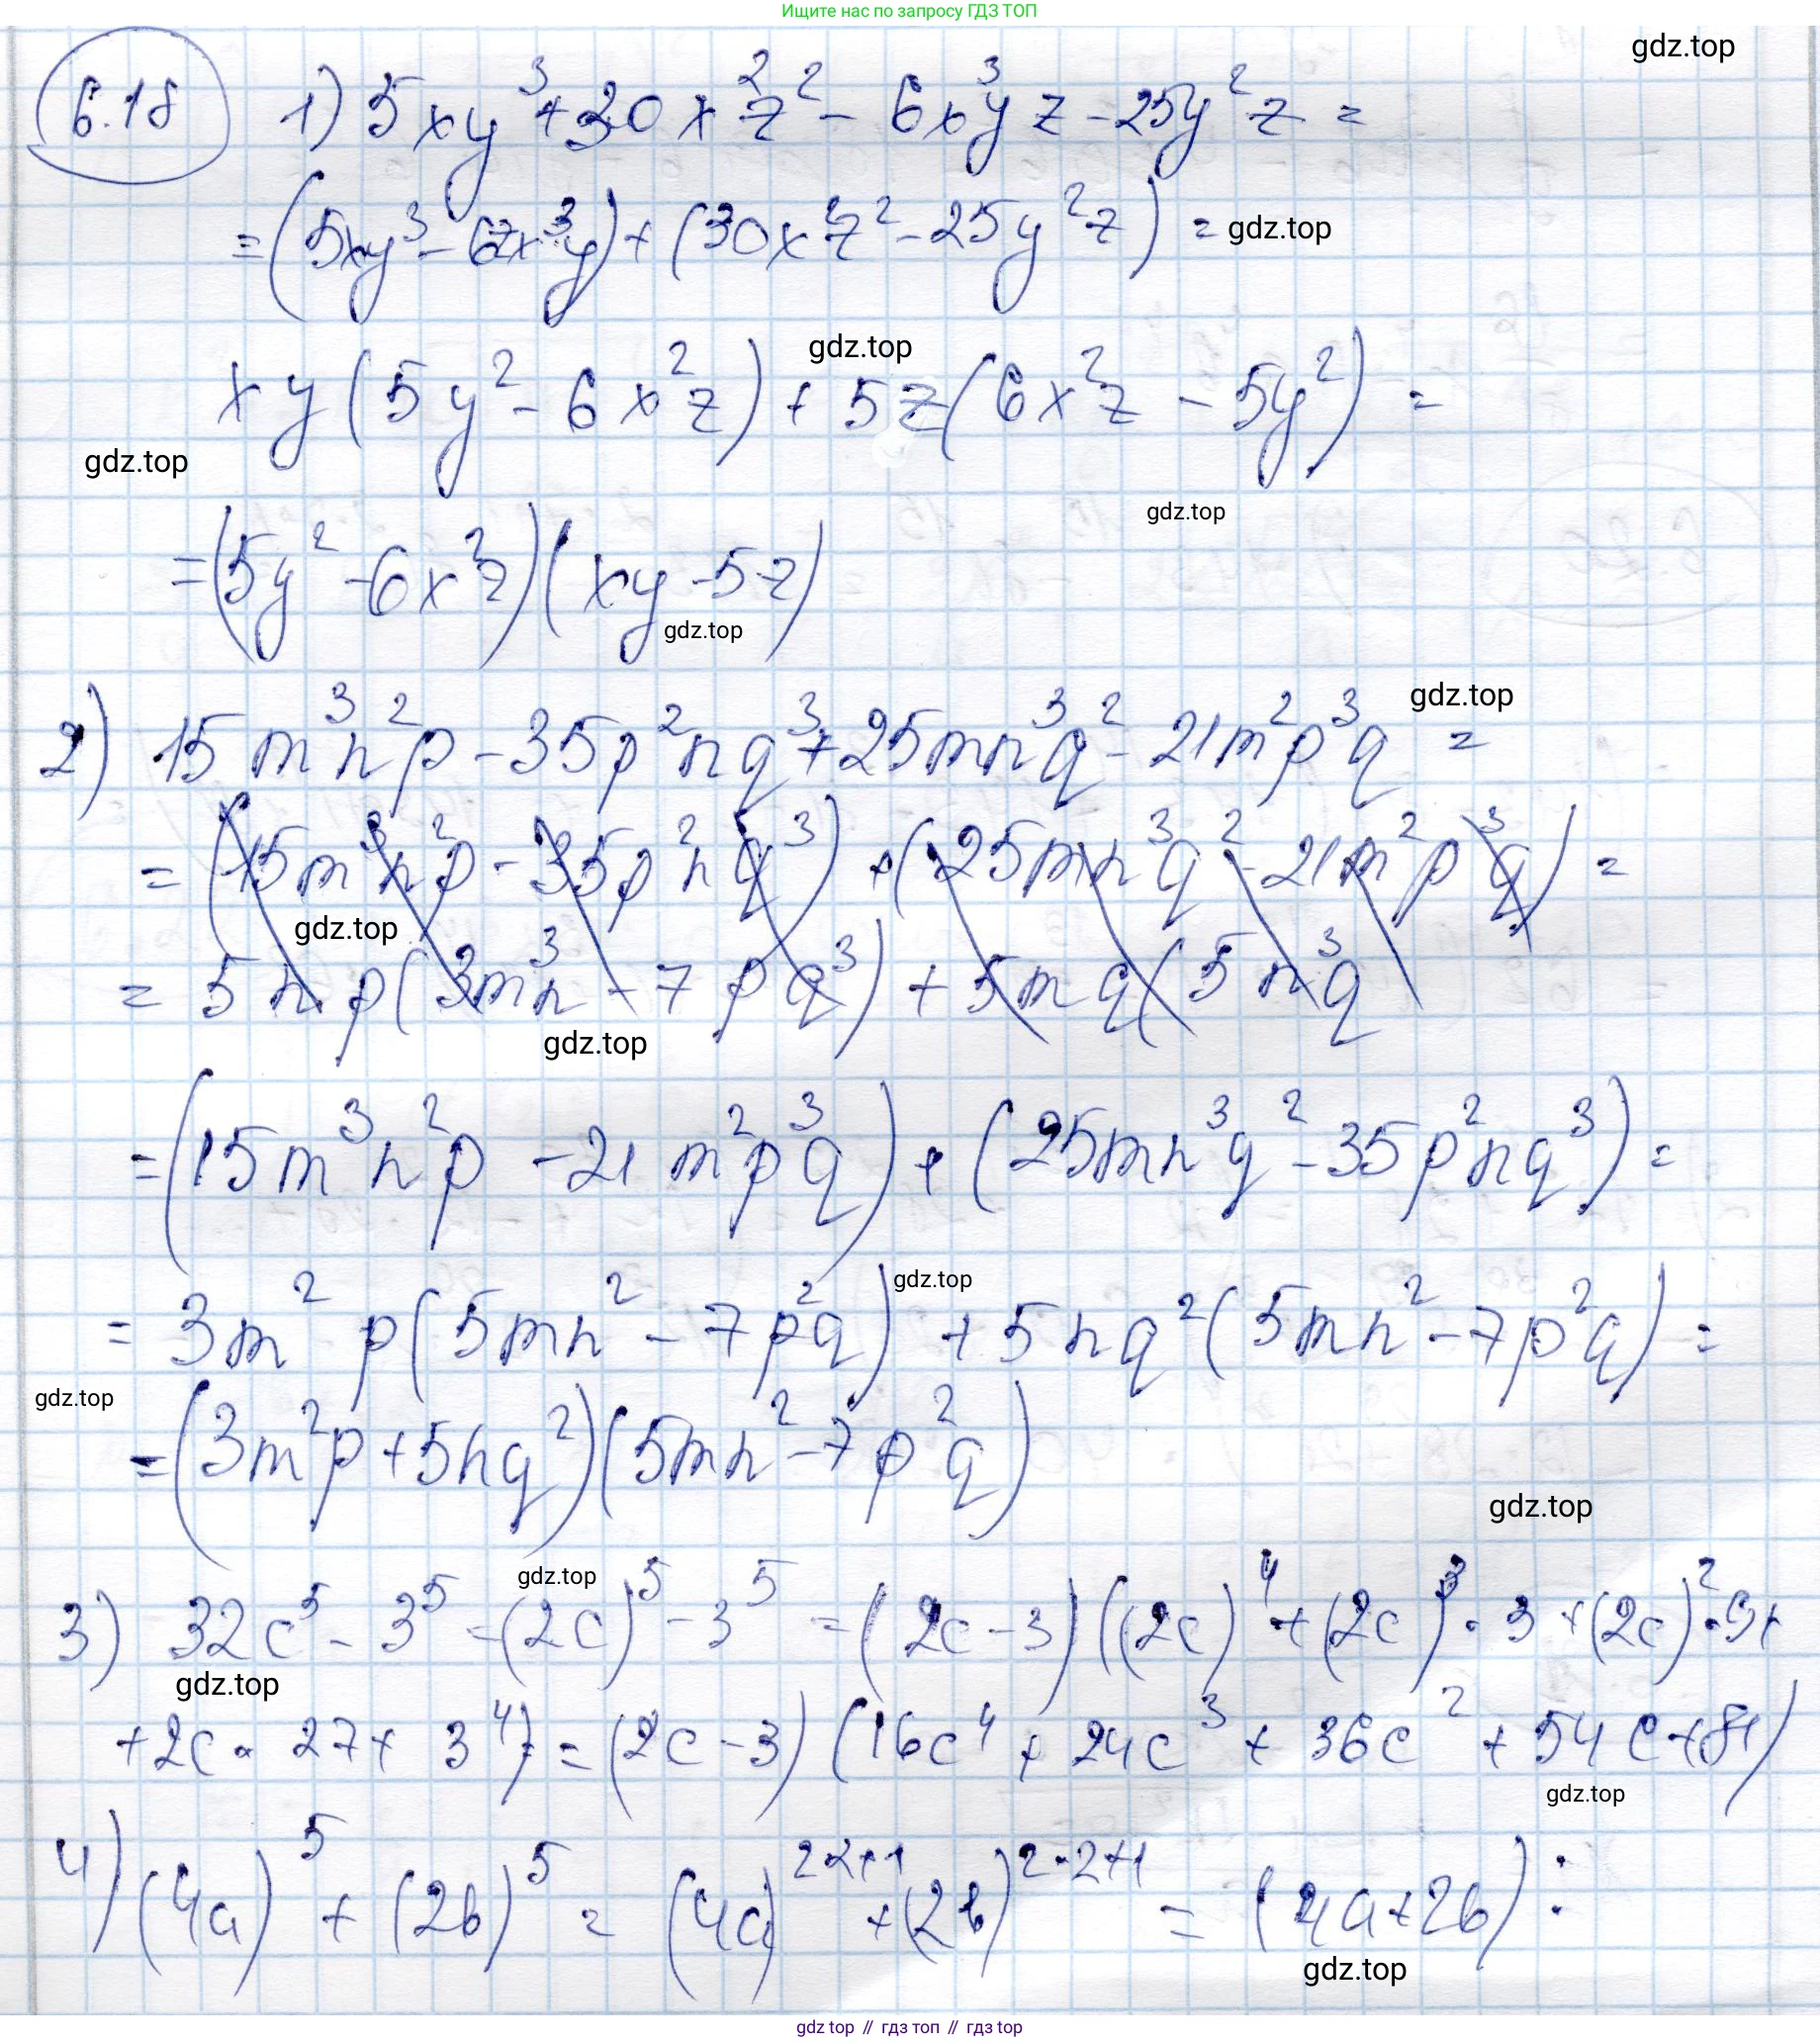 Ищите нас по запросу ГДЗ ТОП
gdz.top
6.18 1) 5xy³+30x²z² - 6x³yz - 25y²z =
= (5xy³ - 6zx³y) + (30x²z² - 25y²z) = gdz.top
gdz.top
xy(5y² - 6x²z) + 5z(6x²z - 5y²) =
gdz.top
gdz.top
= (5y² - 6x²z)(xy - 5z)
gdz.top
gdz.top
2) 15m³n²p - 35p²nq³ + 25mn³q² - 21m²p³q =
= (15m³n²p - 35p²nq³) + (25mn³q² - 21m²p³q) =
gdz.top
= 5np(3m³n - 7pq³) + 5mq(5n³q
gdz.top
= (15m³n²p - 21m²p³q) + (25mn³q² - 35p²nq³) =
gdz.top
= 3m²p(5mn² - 7p²q) + 5nq²(5mn² - 7p²q) =
gdz.top
= (3m²p + 5nq²)(5mn² - 7p²q)
gdz.top
gdz.top
3) 32c⁵ - 3⁵ = (2c)⁵ - 3⁵ = (2c - 3)((2c)⁴ + (2c)³ · 3 + (2c)² · 9 +
gdz.top
+ 2c · 27 + 3⁴) = (2c - 3)(16c⁴ + 24c³ + 36c² + 54c + 81)
gdz.top
4) (4a)⁵ + (2b)⁵ = (4a)²·²⁺¹ + (2b)²·²⁺¹ = (4a + 2b) :
gdz.top
gdz top // гдз топ // гдз top